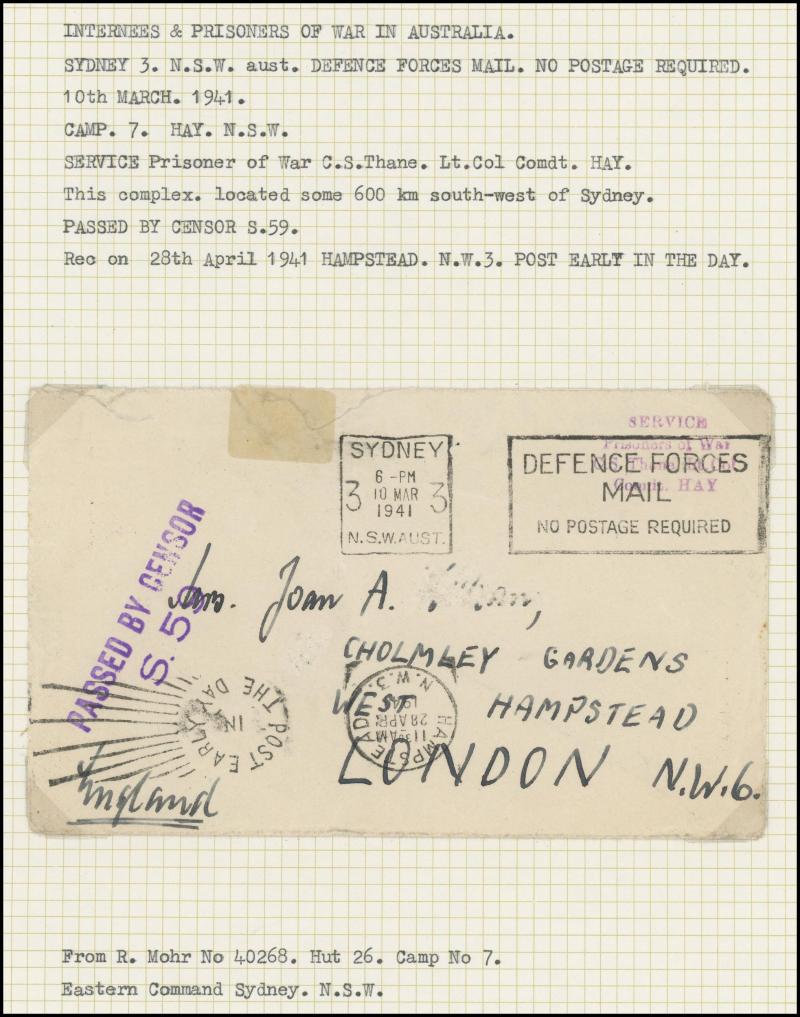 INTERNEES & PRISONERS OF WAR IN AUSTRALIA.
SYDNEY 3. N.S.W. aust. DEFENCE FORCES MAIL. NO POSTAGE REQUIRED.
10th MARCH. 1941.
CAMP. 7. HAY. N.S.W.
SERVICE Prisoner of War C.S.Thane. Lt.Col Comdt. HAY.
This complex. located some 600 km south-west of Sydney.
PASSED BY CENSOR S.59.
Rec on 28th April 1941 HAMPSTEAD. N.W.3. POST EARLY IN THE DAY.
SERVICE
Prisoners of War
Comdt. HAY
SYDNEY
6-PM
3 10 MAR 3
1941
N.S.W. AUST.
DEFENCE FORCES
MAIL
NO POSTAGE REQUIRED
PASSED BY CENSOR
S. 59
Mrs. Joan A.
CHOLMLEY GARDENS
WEST HAMPSTEAD
LONDON N.W.6.
England
POST EARLY
IN
THE DAY
HAMPSTEAD
AM
28 APR
N.W.3.
From R. Mohr No 40268. Hut 26. Camp No 7.
Eastern Command Sydney. N.S.W.